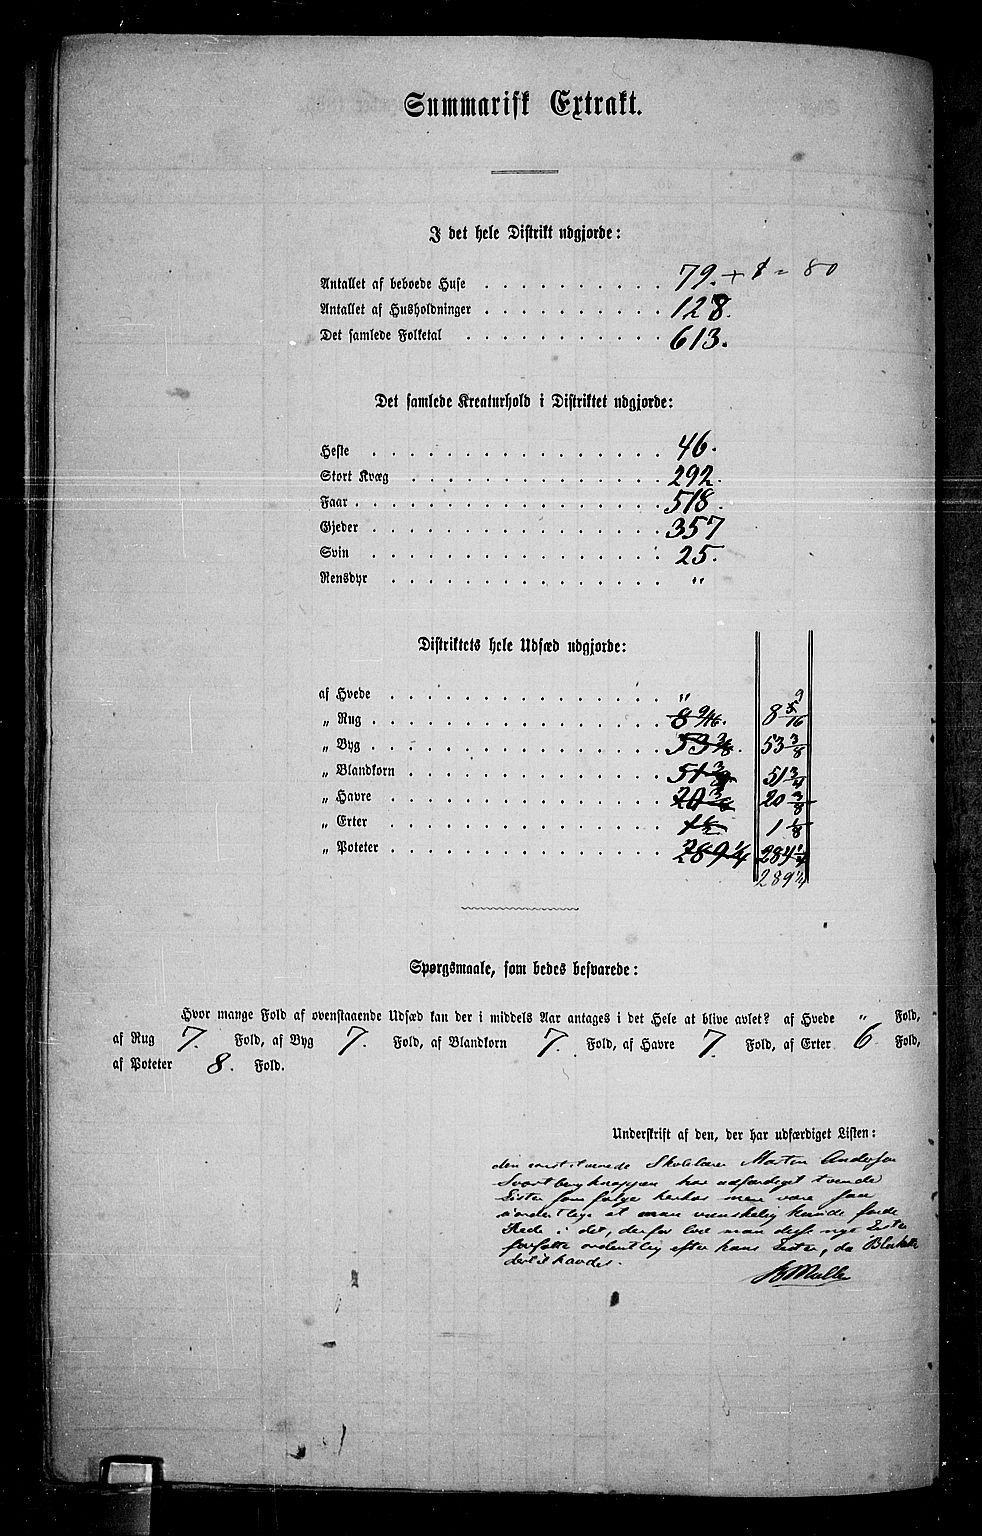 Summarisk Extrakt.
I det hele Distrikt udgjorde:
Antallet af beboede Huse . . . . . . . . . . 79. + 1 = 80
Antallet af Husholdninger . . . . . . . . . . 128.
Det samlede Folketal . . . . . . . . . . . 613.
Det samlede Kreaturhold i Distriktet udgjorde:
Heste . . . . . . . . . . . . . . . 46.
Stort Kvæg . . . . . . . . . . . . . 292.
Faar . . . . . . . . . . . . . . . . 518.
Gjeder . . . . . . . . . . . . . . . 357
Svin . . . . . . . . . . . . . . . 25.
Rensdyr . . . . . . . . . . . . . . "
Distriktets hele Udsæd udgjorde:
af Hvede . . . . . . . . . . . . . . "
„ Rug . . . . . . . . . . . . . . . 8 9/16. 8 9/16
„ Byg . . . . . . . . . . . . . . . 53 3/8. 53 3/8
„ Blandkorn . . . . . . . . . . . . . 51 3/4 51 3/4
„ Havre . . . . . . . . . . . . . . 20 3/8 20 3/8
„ Erter . . . . . . . . . . . . . . 1 1/8
„ Poteter . . . . . . . . . . . . . . 289 1/4 284 1/4
289 1/4
Spørgsmaale, som bedes besvarede:
Hvor mange Fold af ovenstaaende Udsæd kan der i middels Aar antages i det Hele at blive avlet? af Hvede " Fold,
af Rug 7. Fold, af Byg 7. Fold, af Blandkorn 7. Fold, af Havre 7. Fold, af Erter 6 Fold,
af Poteter 8. Fold.
Underskrift af den, der har udfærdiget Listen:
den constituerede Skolelærer Morten Andersen
har udfærdiget tvende
Lister som følge herhos men vare saa
uordentlige at man vanskelig kunde finde
Rede i det, derfor lod man disse nye Lister
forfatte ordentlig efter hans Lister, da Blanketter
dertil havdes.
Müller